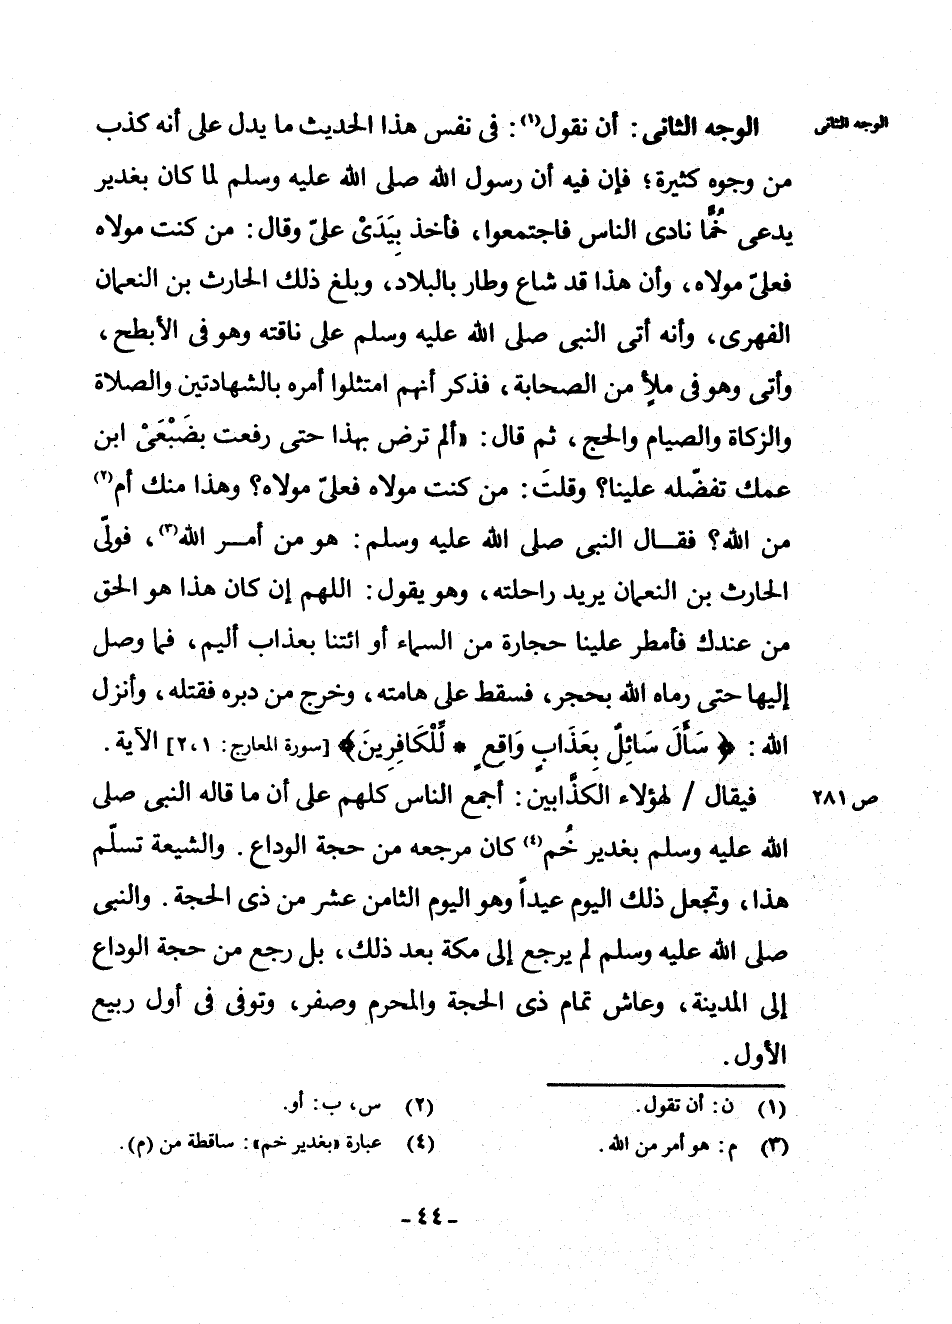 الوجه الثانى
الوجه الثانى: أن نقول(١): فى نفس هذا الحديث ما يدل على أنه كذب
من وجوه كثيرة؛ فإن فيه أن رسول الله صلى الله عليه وسلم لما كان بغدير
يدعى خُمًّا نادى الناس فاجتمعوا، فأخذ بِيَدَىْ علىّ وقال: من كنت مولاه
فعلىّ مولاه، وأن هذا قد شاع وطار بالبلاد، وبلغ ذلك الحارث بن النعمان
الفهرى، وأنه أتى النبى صلى الله عليه وسلم على ناقته وهو فى الأبطح،
وأتى وهو فى ملأٍ من الصحابة، فذكر أنهم امتثلوا أمره بالشهادتين والصلاة
والزكاة والصيام والحج، ثم قال: «ألم ترض بهذا حتى رفعت بضَبْعَىْ ابن
عمك تفضّله علينا؟ وقلتَ: من كنت مولاه فعلىّ مولاه؟ وهذا منك أم(٢)
من الله؟ فقال النبى صلى الله عليه وسلم: هو من أمر الله(٣)، فولّى
الحارث بن النعمان يريد راحلته، وهو يقول: اللهم إن كان هذا هو الحق
من عندك فأمطر علينا حجارة من السماء أو ائتنا بعذاب أليم، فما وصل
إليها حتى رماه الله بحجر، فسقط على هامته، وخرج من دبره فقتله، وأنزل
الله: ﴿سَأَلَ سَائِلٌ بِعَذَابٍ وَاقِعٍ * لِّلْكَافِرِينَ﴾ [سورة المعارج: ٢،١] الآية.
ص ٢٨١ فيقال / لهؤلاء الكذَّابين: أجمع الناس كلهم على أن ما قاله النبى صلى
الله عليه وسلم بغدير خُم(٤) كان مرجعه من حجة الوداع. والشيعة تسلّم
هذا، وتجعل ذلك اليوم عيداً وهو اليوم الثامن عشر من ذى الحجة. والنبى
صلى الله عليه وسلم لم يرجع إلى مكة بعد ذلك، بل رجع من حجة الوداع
إلى المدينة، وعاش تمام ذى الحجة والمحرم وصفر، وتوفى فى أول ربيع
الأول.
(١) ن: أن تقول. (٢) س، ب: أو.
(٣) م: هو أمر من الله. (٤) عبارة «بغدير خم»: ساقطة من (م).
ـ ٤٤ ـ